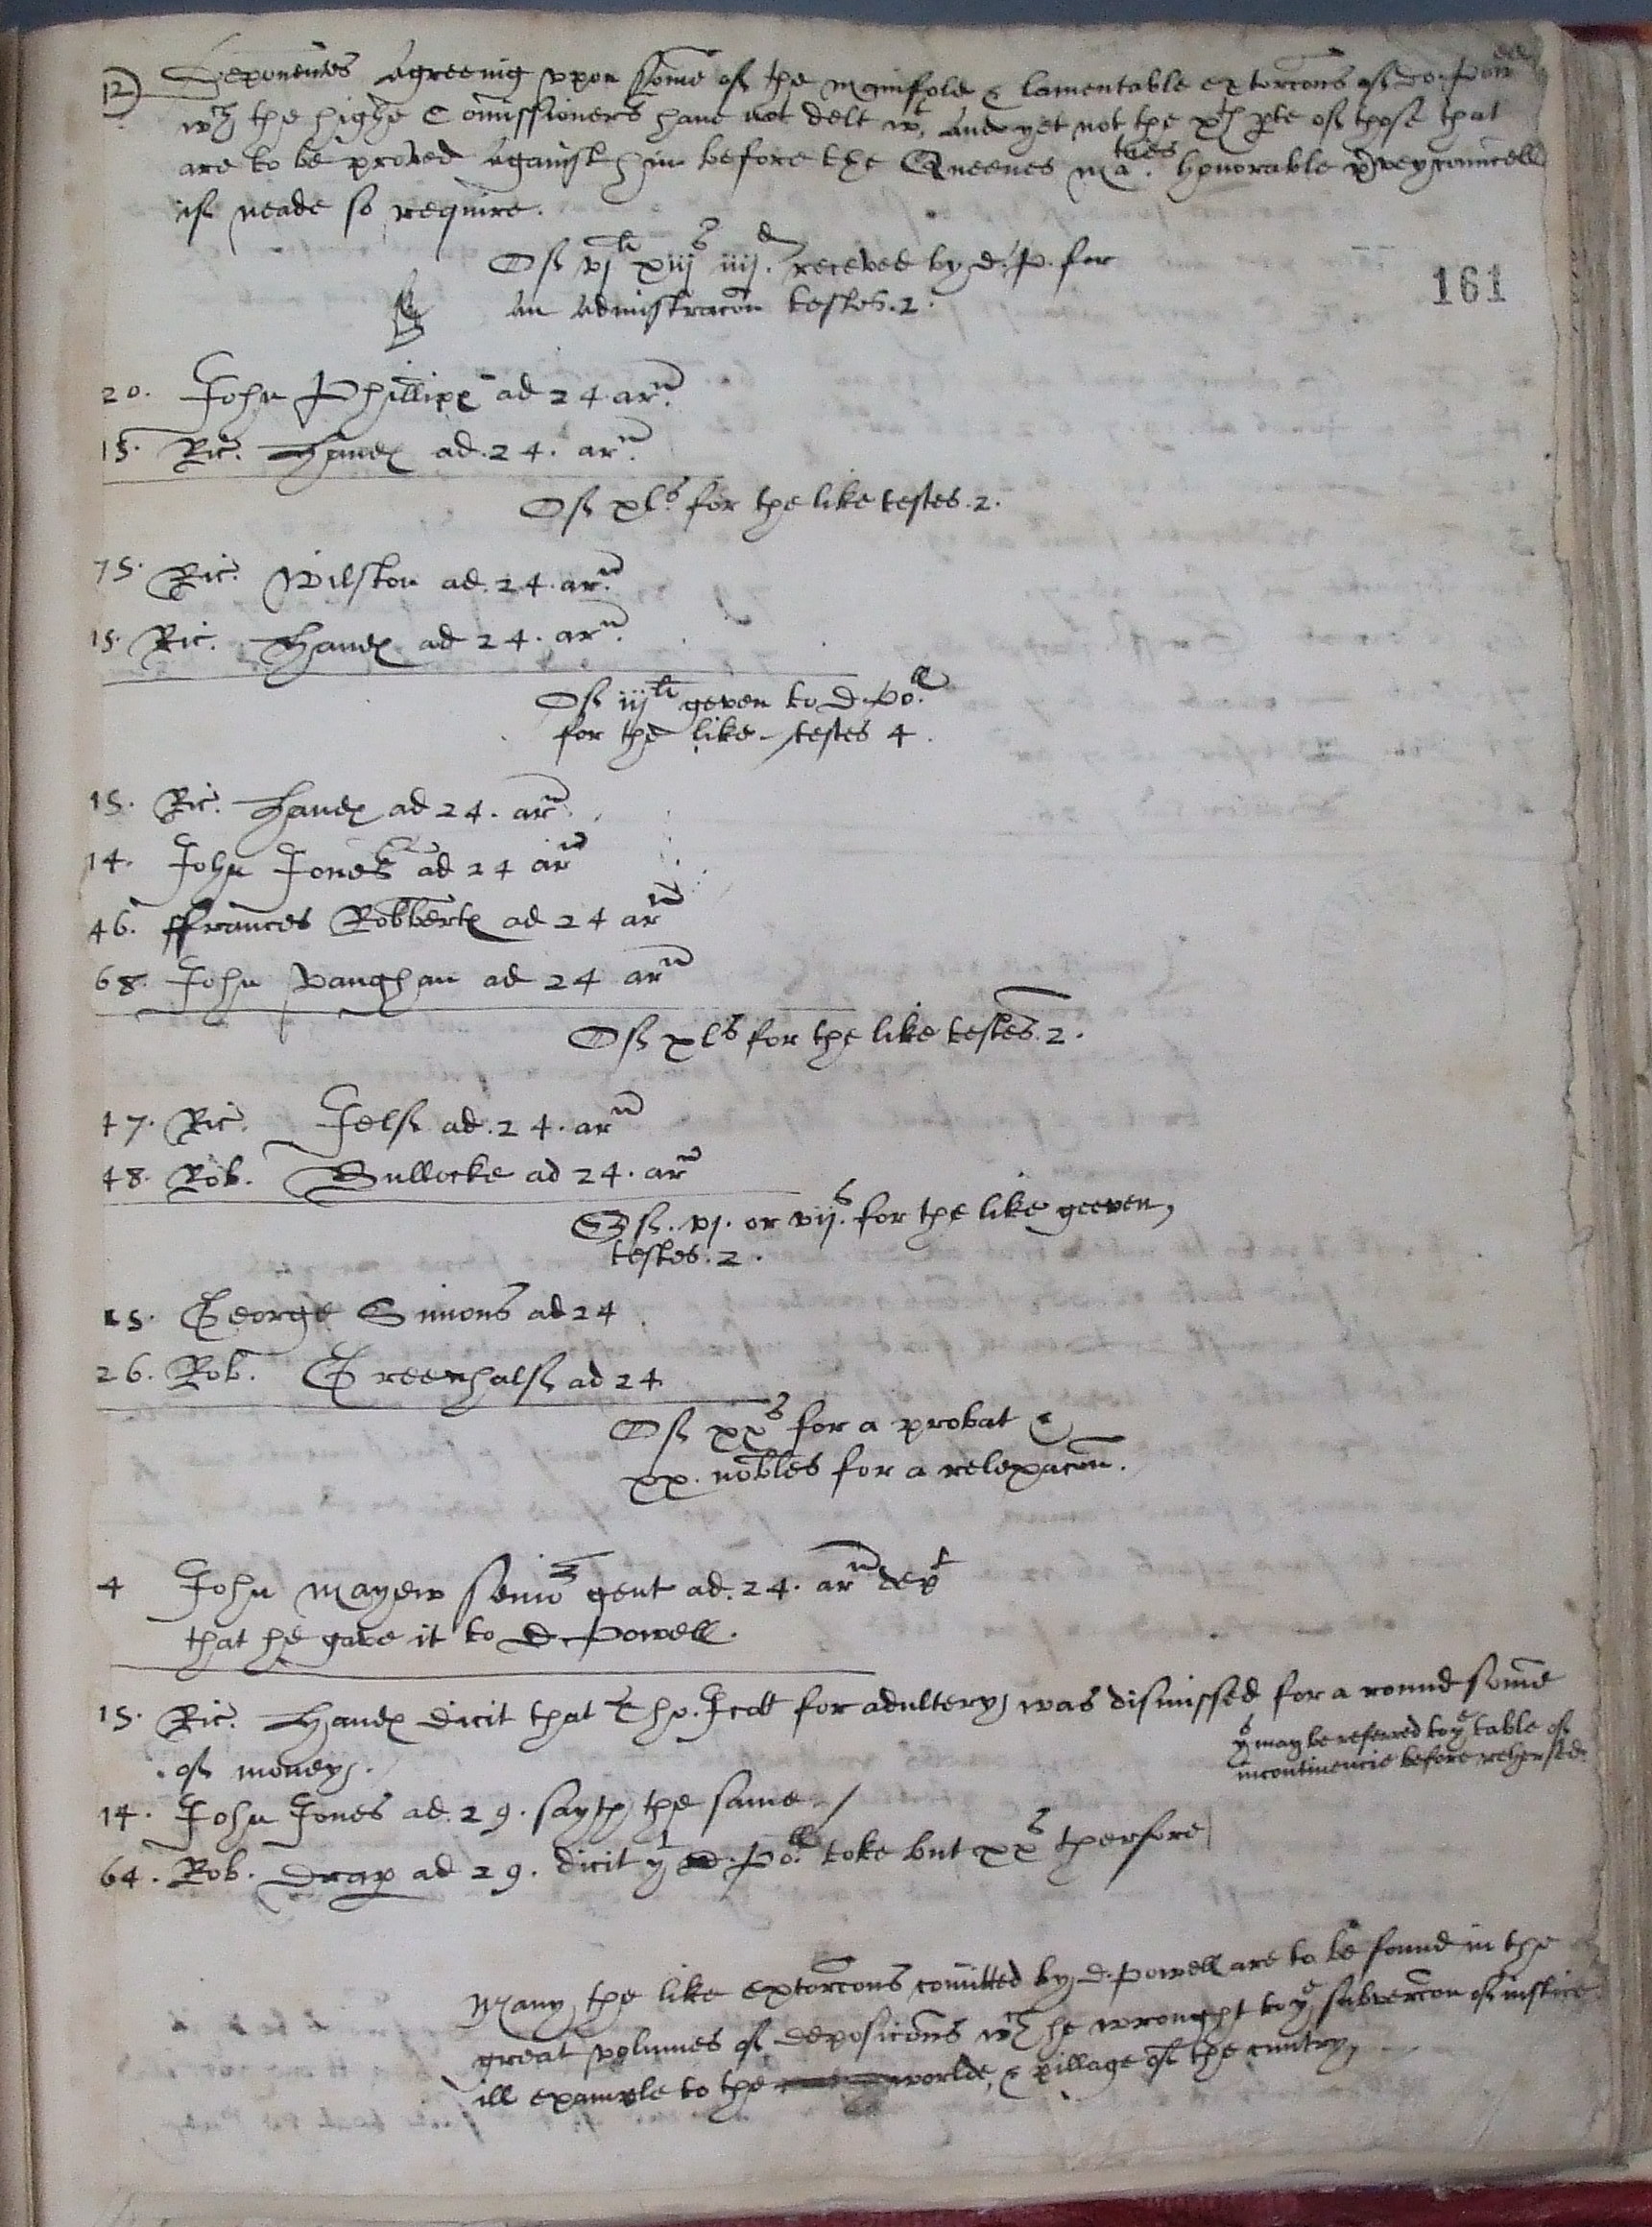 12) Deponentes Agreeing vpon some of the manifolde & lamentable extorcons of do. Powell
wch the highe Comissioners haue not delt wt, And yet not the xth pte of those that
are to be proved Against him before the Queenes maties honorable pveycouncell
if neade so require.
Of vjli xiijs iiijd. receved by d. P. for
An Admistracon testes. 2.
161
20. John Phillips ad 24 arn.
15. Ric. Hand ad. 24. arn.
Of xls for the like testes. 2.
75. Ric. Wilston ad. 24. arn.
15. Ric. Hand ad 24. arn.
Of iijli geven to D. Poll
for the like / testes 4.
15. Ric. Hand ad 24. arn.
14. John Jones ad 24 arn
46. ffrances Robberts ad 24 arn
68. John vaughan ad 24 arn
Of xls for the like testes. 2.
47. Ric. Jelf ad. 24. arn
48. Rob. Bullocke ad 24. arn
Of. vj. or vijs. for the like geeven,
testes. 2.
15. George Simons ad 24
26. Rob. Greenhalf ad 24
Of xxs for a probat &
xx. nobles for a relexacon.
4 John mayew senior gent ad. 24. arn dept
that he gave it to D. Powell.
15. Ric. Hand dicit that Tho. for adultery was dismissed for a round some
of money.
ys may be referred to ye table of
incontinencie before rehersed.
14. John Jones ad. 29. sayth the same /
64. Rob. Drap ad 29. dicit yt D. Poll toke but xxs therfore
Many the like extorcons comitted by D. Powell are to be found in the
great volumes of deposicons wch he wrought to ye subvercon of iustice
ill example to the worlde, & pillage of the cuntry,